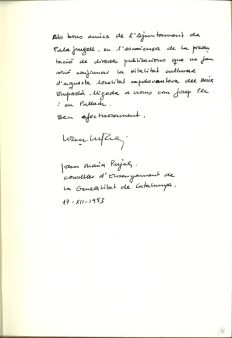 Als bons amics de l'Ajuntament de
Palafrugell, en l'escaiença de la presen-
tació de diverses publicacions que no fan
sinó confirmar la vitalitat cultural
d'aquesta localitat capdavantera del Baix
Empordà, lligada a noms com Josep Pla
i en Palladi.
Ben afectuosament.
Joan Maria Pujals,
Conseller d'Ensenyament de
la Generalitat de Catalunya.
17-XII-1993